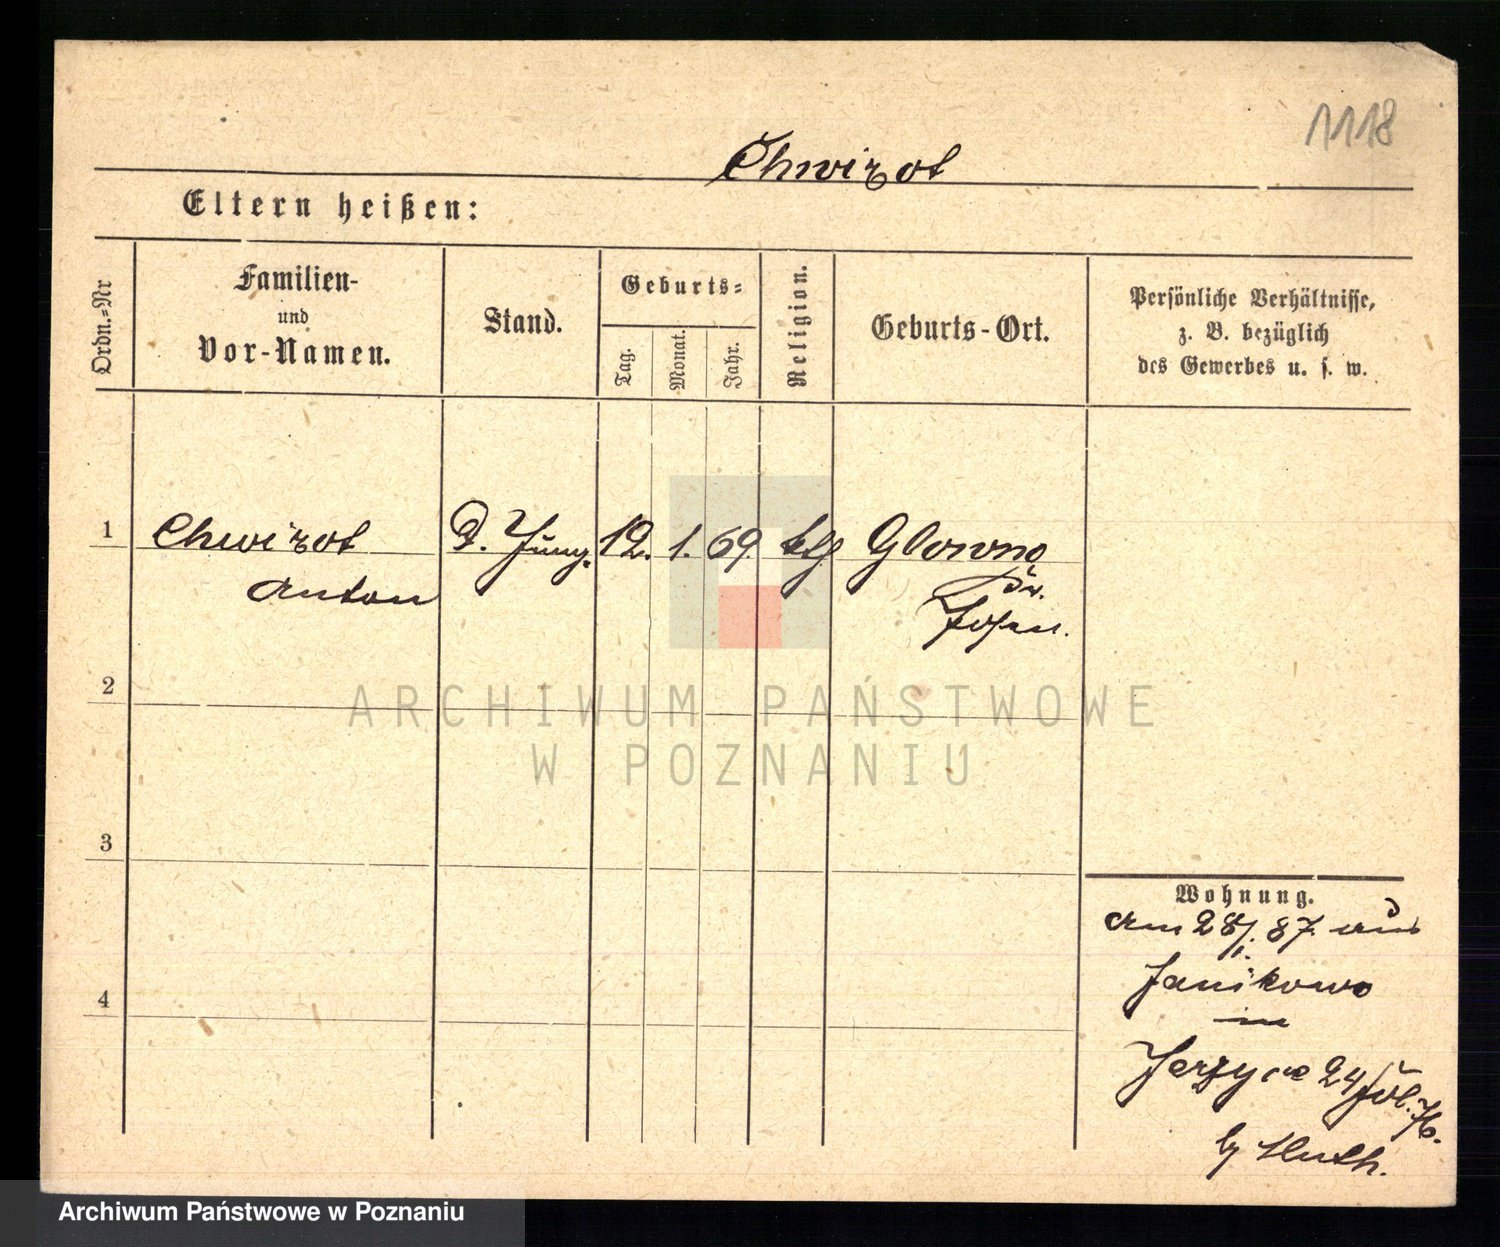 1118
Chwirot
Eltern heißen:
Ordn.=Nr
Familien-
und
Vor-Namen.
Stand.
Geburts=
Tag.
Monat.
Jahr.
Religion.
Geburts-Ort.
Persönliche Verhältnisse,
z. B. bezüglich
des Gewerbes u. s. w.
1
Chwirot
Anton
D. Jung.
12. 1. 69.
kth
Glowno
Kr.
Posen.
2
3
4
Wohnung.
Am 28/1. 87. aus
Janikowo
in
Jerzyce 24
b/ Huth.
ARCHIWUM PAŃSTWOWE
W POZNANIU
Archiwum Państwowe w Poznaniu